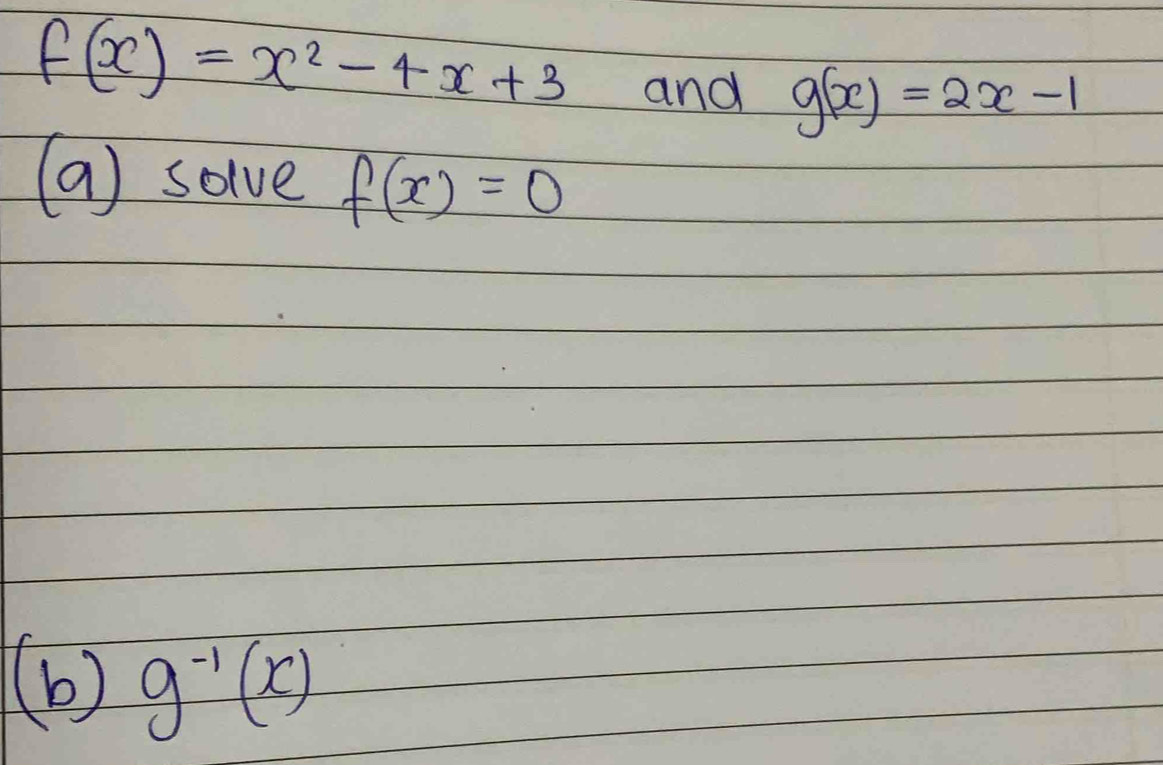 f(x) = x² - 4x + 3 and g(x) = 2x - 1
(a) solve f(x) = 0
(b) g⁻¹(x)